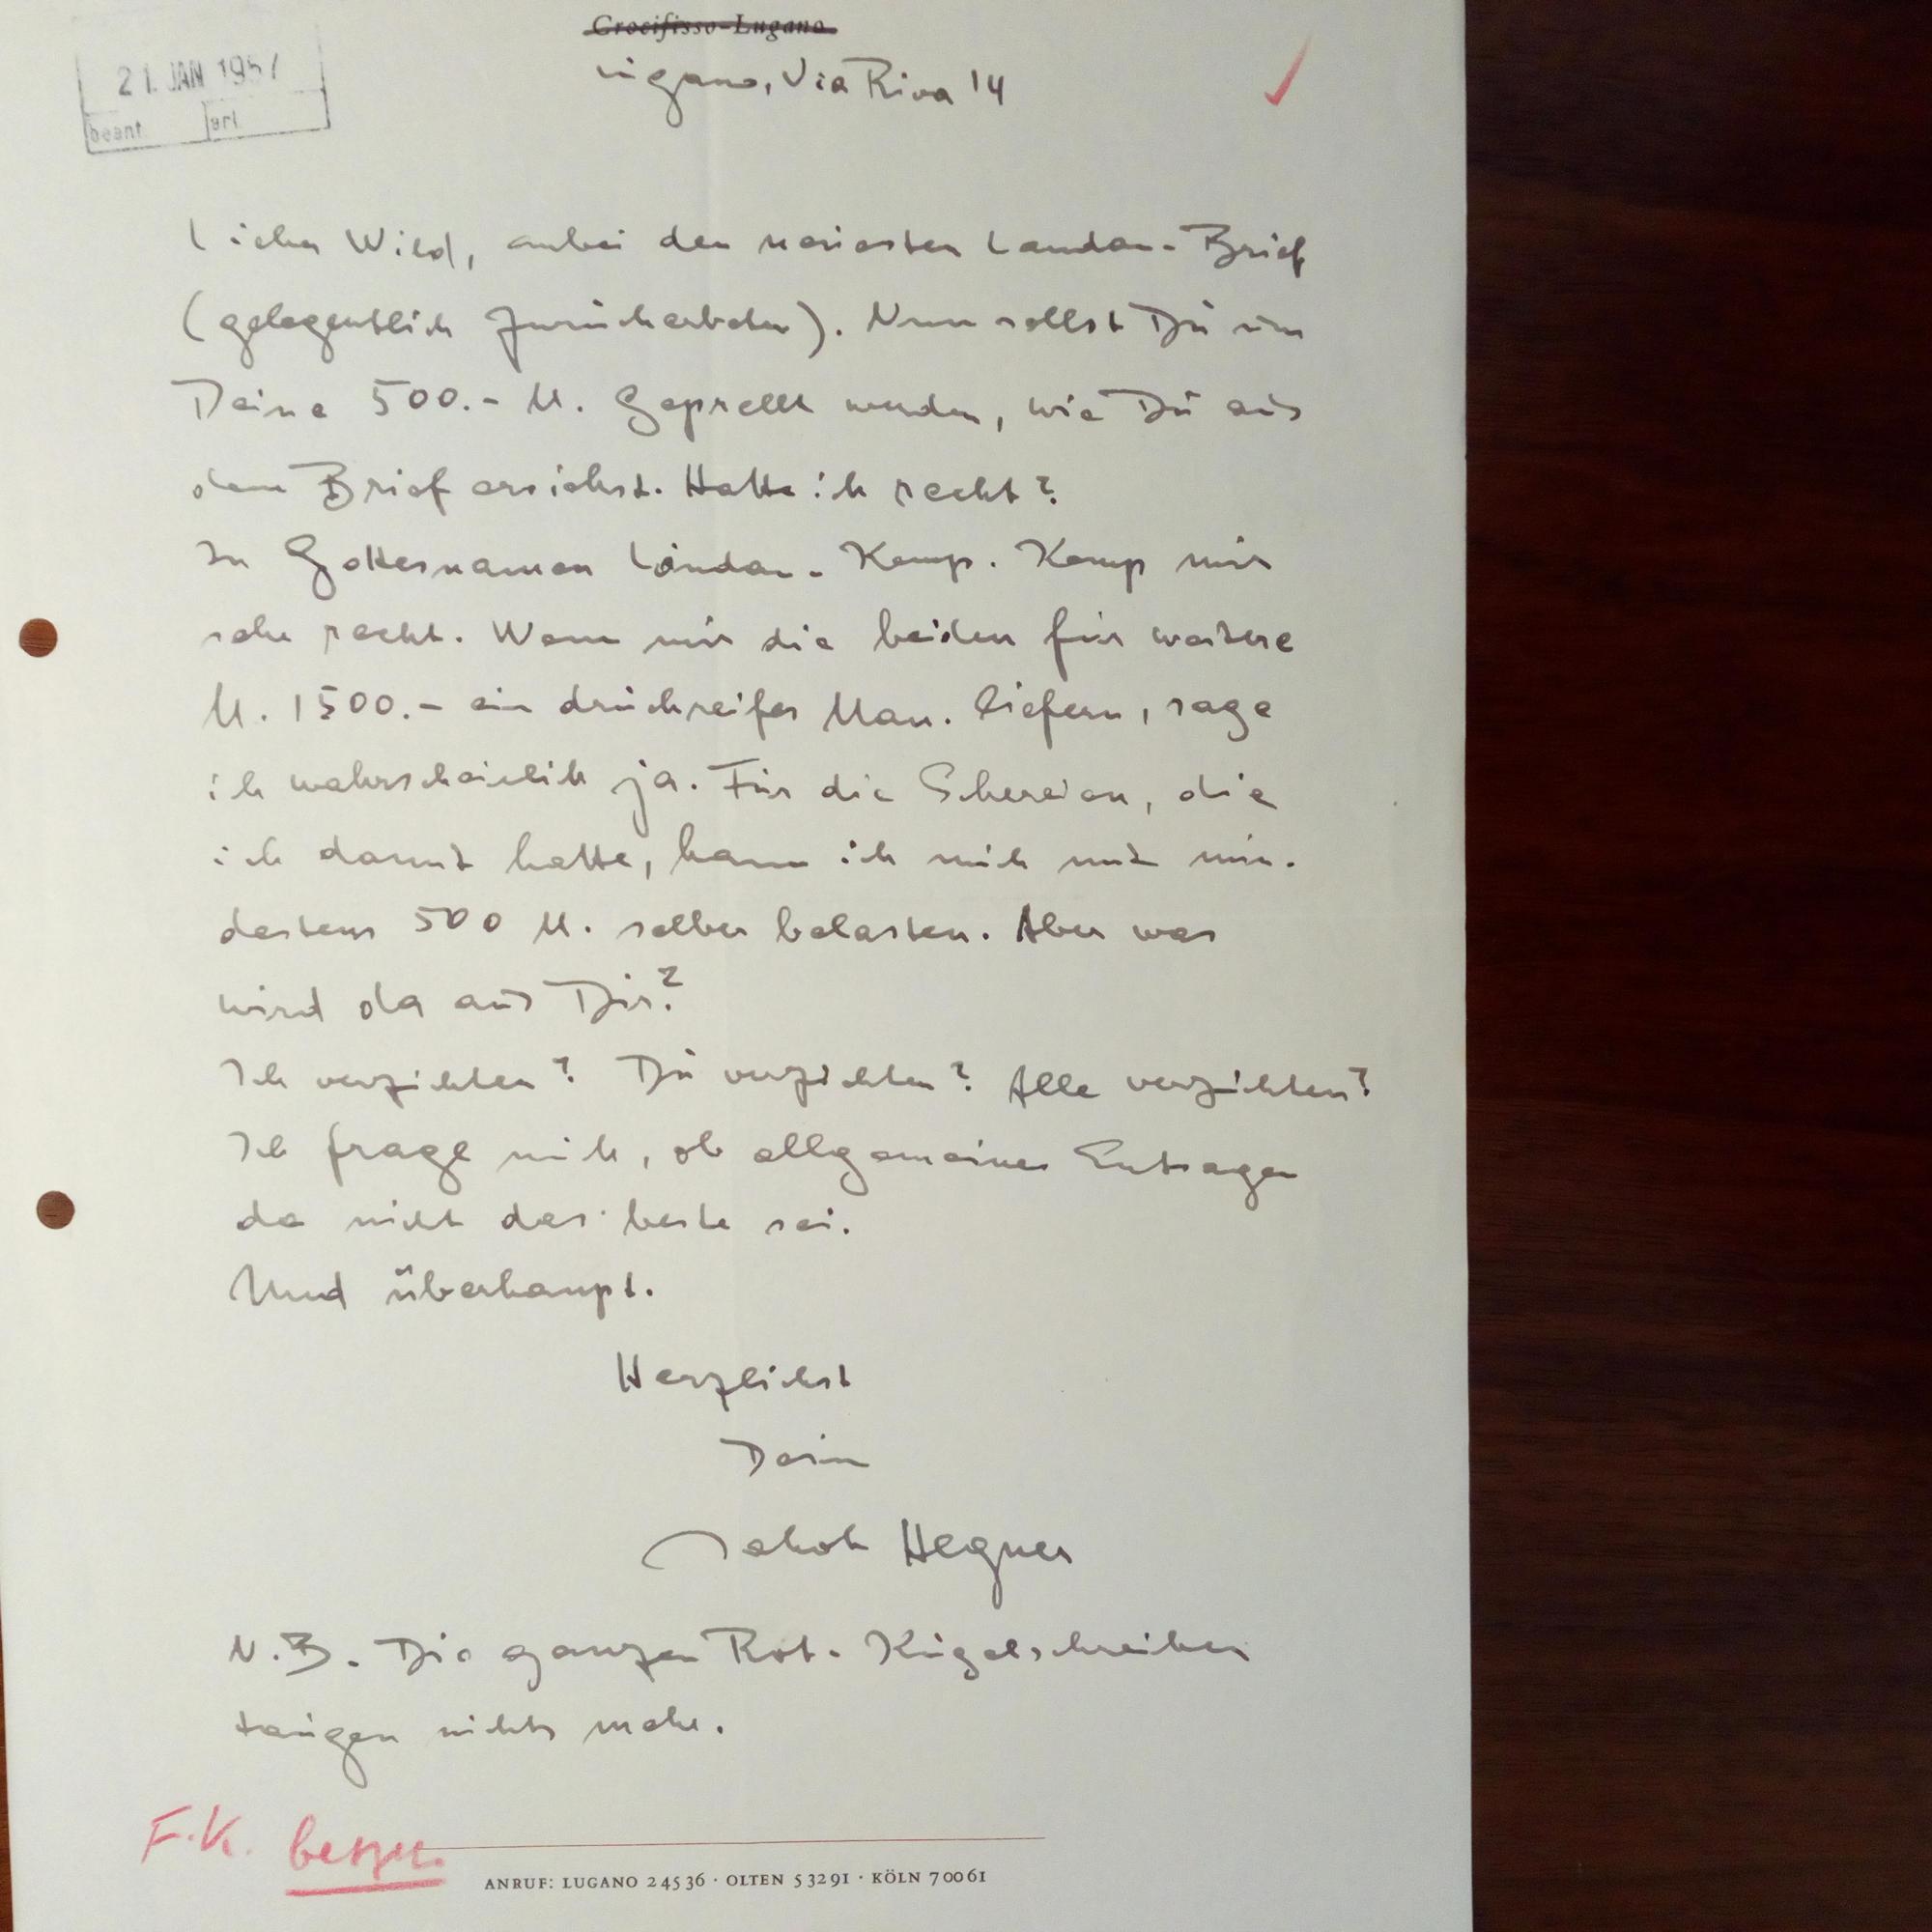 Crocifisso-Lugano
Lugano, Via Riva 14
21. JAN 1957
beant. erl.
Lieber Wild, anbei den neuesten Landau-Brief
(gelegentlich zurückerbeten). Nun sollst Du um
Deine 500.- M. geprellt werden, wie Du aus
dem Brief ersiehst. Hatte ich recht?
In Gottesnamen Landau-Kemp. Kemp mir
sehr recht. Wenn mir die beiden für weitere
M. 1500.- ein druckreifes Man. liefern, sage
ich wahrscheinlich ja. Für die Scherereien, die
ich damit hatte, kann ich mich mit min-
destens 500 M. selber belasten. Aber was
wird da aus Dir?
Ich verzichten? Du verzichten? Alle verzichten?
Ich frage mich, ob allgemeines Entsagen
da nicht das beste sei.
Und überhaupt.
Herzlichst
Dein
Jakob Hegner
N.B. Die ganzen Rot-Kugelschreiber
taugen nichts mehr.
F.K.
ANRUF: LUGANO 24536 · OLTEN 53291 · KÖLN 70061